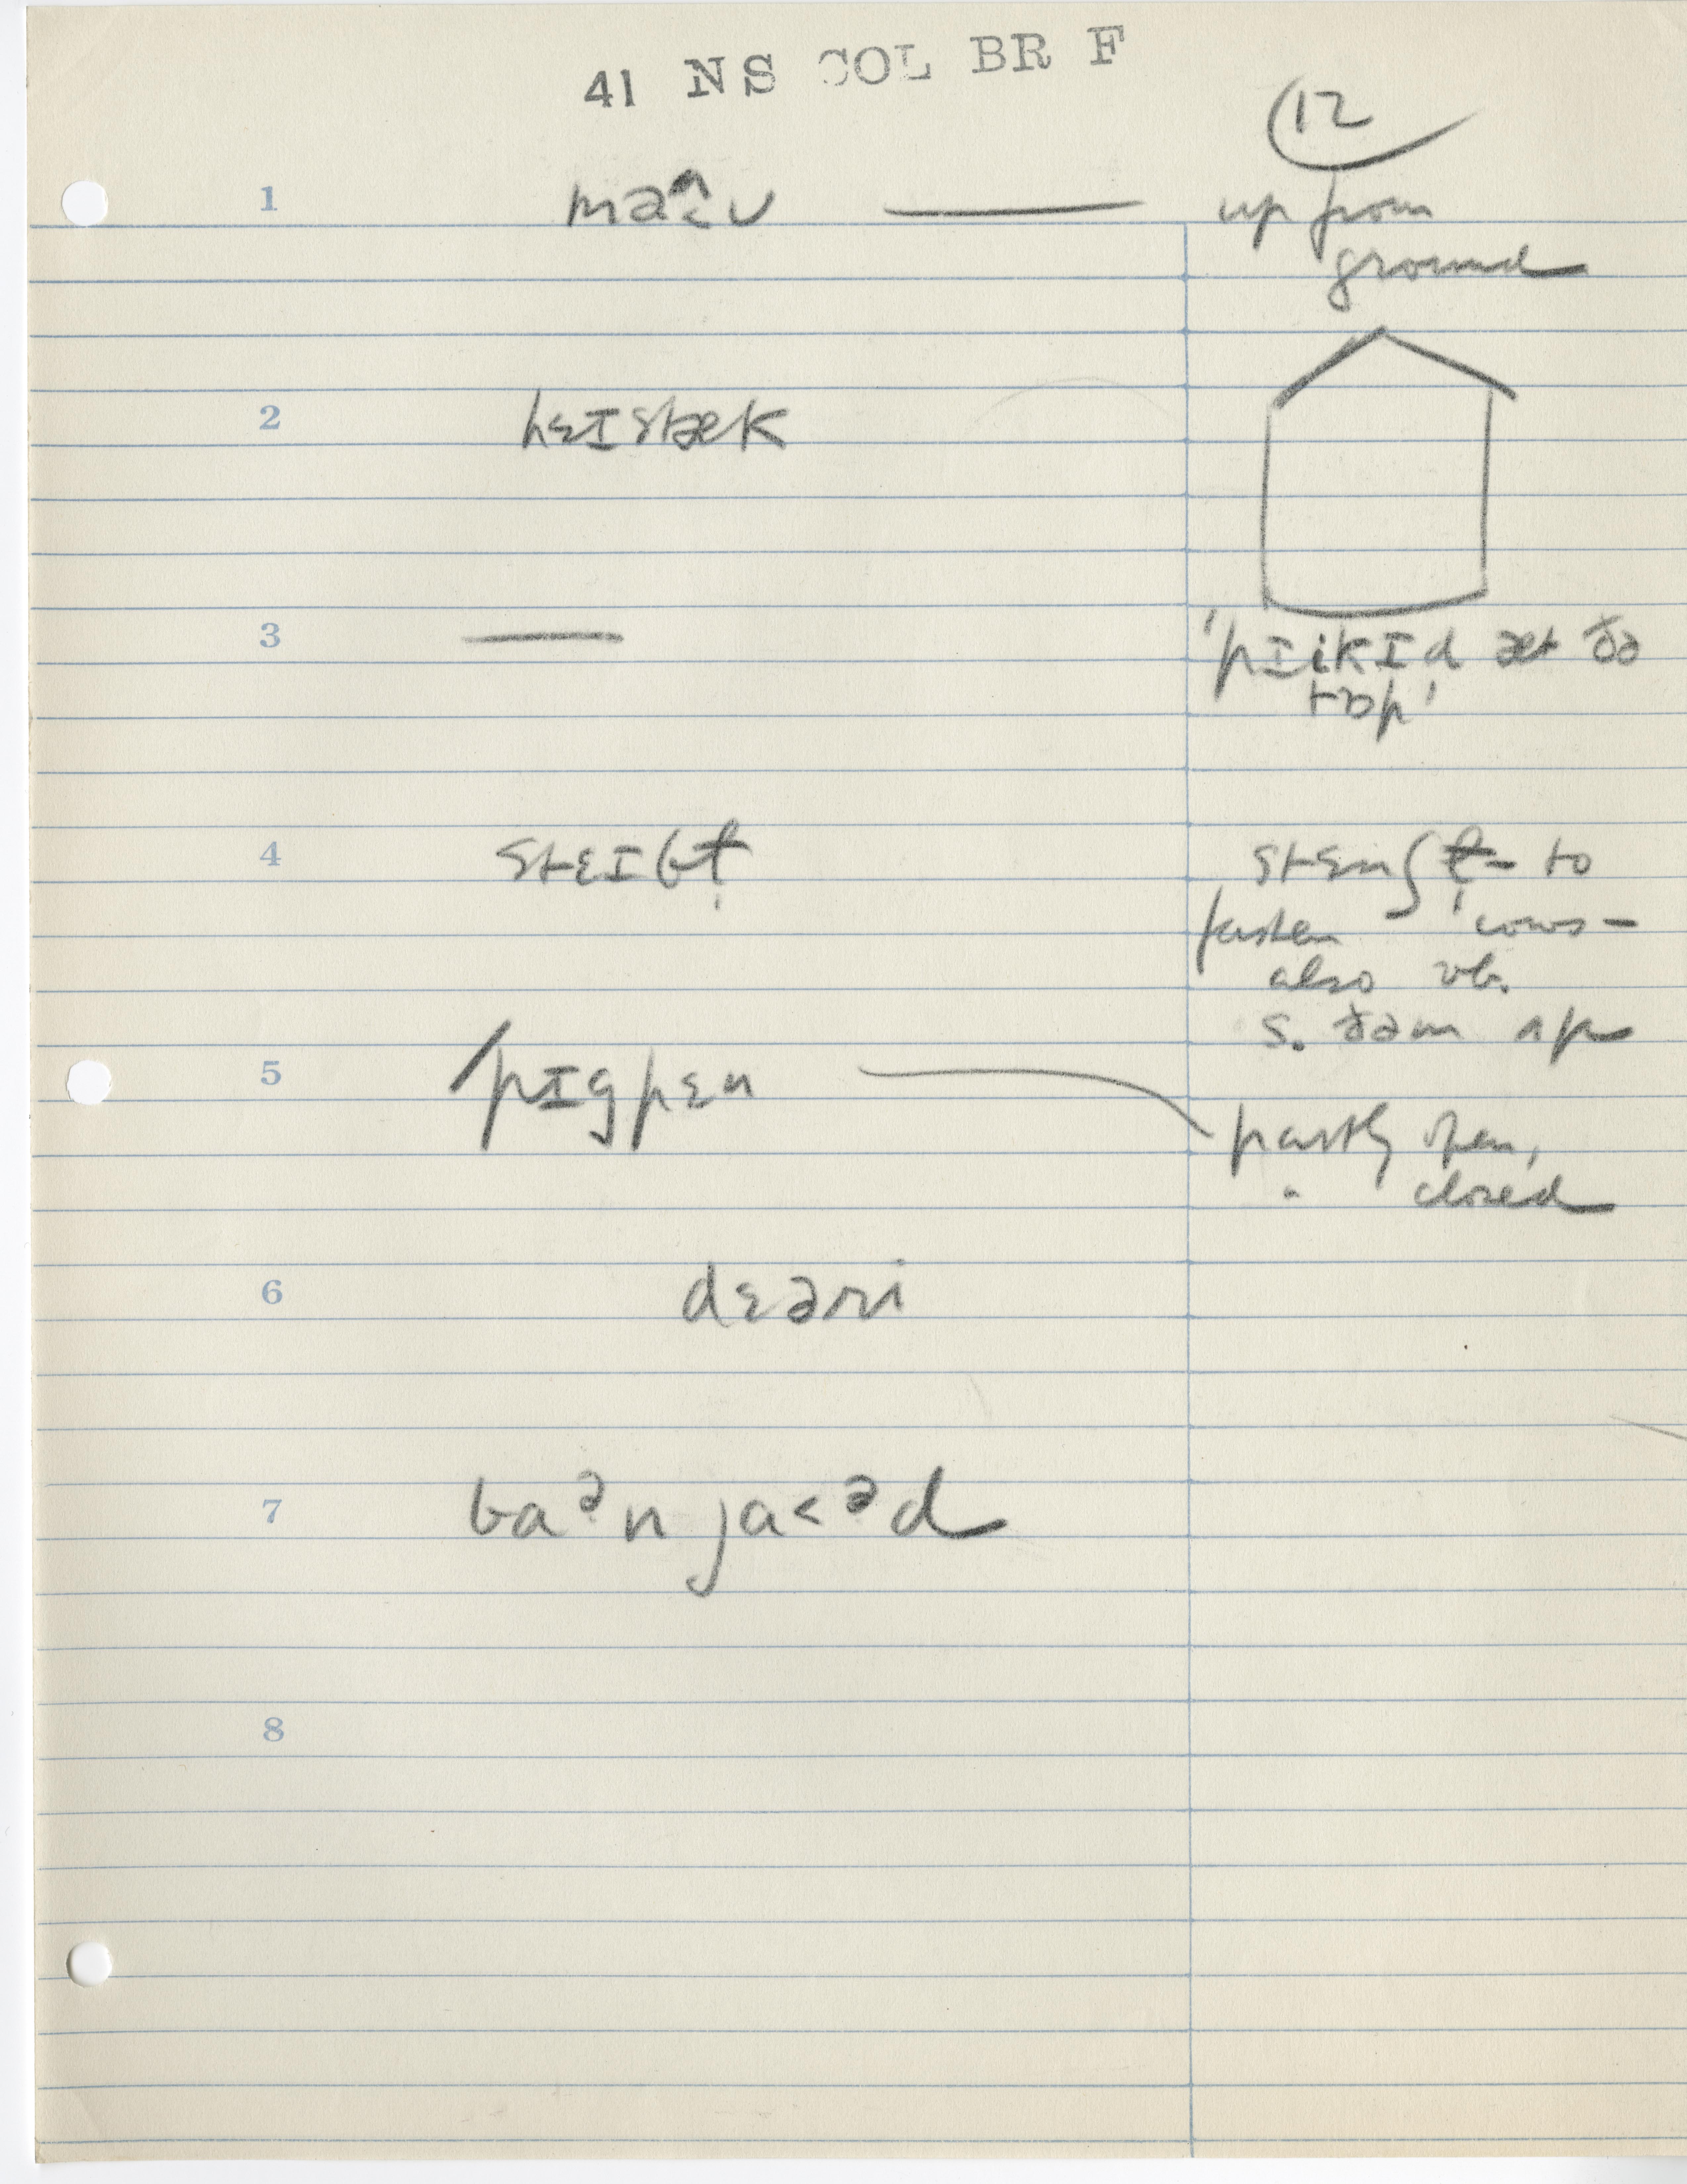 41 NS COL BR F
12
1 up from
ground
2 hɛɪstæk
3 'pɪikɪd æt ðə
tɒp'
4 stɛɪbɫ̩ stɛnʃɫ̩ - to
fasten cows -
also vb.
s. ðəm ʌp
5 pɪgpɛn partly open,
" closed
6 dɛəri
7 baᵊn ja<ᵊd
8